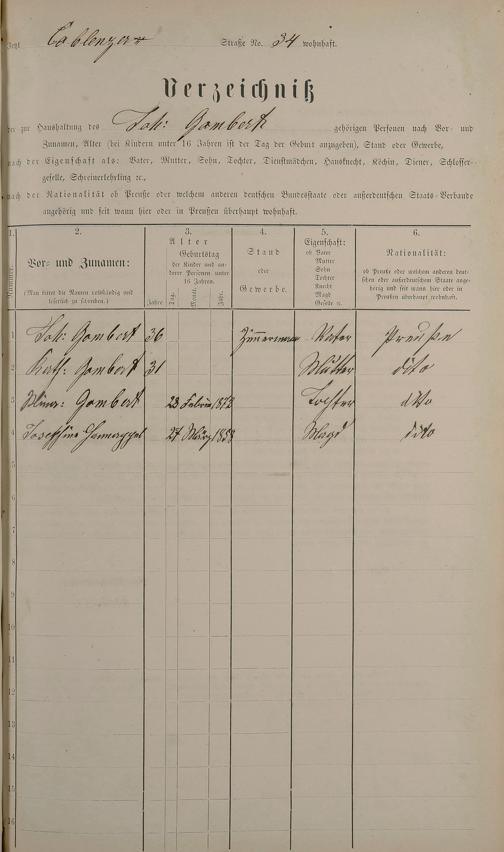 Jetzt Coblenzer Straße No. 34 wohnhaft.
Verzeichniß
der zur Haushaltung des Joh: Gombert gehörigen Personen nach Vor- und
Zunamen, Alter (bei Kindern unter 16 Jahren ist der Tag der Geburt anzugeben), Stand oder Gewerbe,
nach der Eigenschaft als: Vater, Mutter, Sohn, Tochter, Dienstmädchen, Hausknecht, Köchin, Diener, Schlosser-
geselle, Schreinerlehrling ꝛc.,
nach der Nationalität ob Preuße oder welchem anderen deutschen Bundesstaate oder außerdeutschen Staats-Verbande
angehörig und seit wann hier oder in Preußen überhaupt wohnhaft.
1. 2. 3. 4. 5. 6.
Nummer.
Vor- und Zunamen:
(Man bittet die Namen vollständig und
leserlich zu schreiben.)
Alter
Geburtstag
der Kinder und an-
derer Personen unter
16 Jahren.
Jahre
Tag.
Monat.
Jahr.
Stand
oder
Gewerbe.
Eigenschaft:
ob Vater
Mutter
Sohn
Tochter
Knecht
Magd
Geselle ꝛc.
Nationalität:
ob Preuße oder welchem anderen deut-
schen oder außerdeutschen Staate ange-
hörig und seit wann hier oder in
Preußen überhaupt wohnhaft.
1 Joh: Gombert 36 Zimmermann Vater Preuße
2 Kath: Gombert 31 Mutter dito
3 Gombert 23 Februar 1872 Tochter dito
4 Josephine 27 März 1858 Magd dito
5
6
7
8
9
10
11
12
13
14
15
16